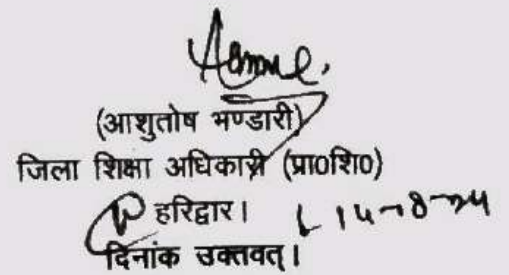 (आशुतोष भण्डारी)
जिला शिक्षा अधिकारी (प्रा०शि०)
हरिद्वार।
दिनांक उक्तवत्।